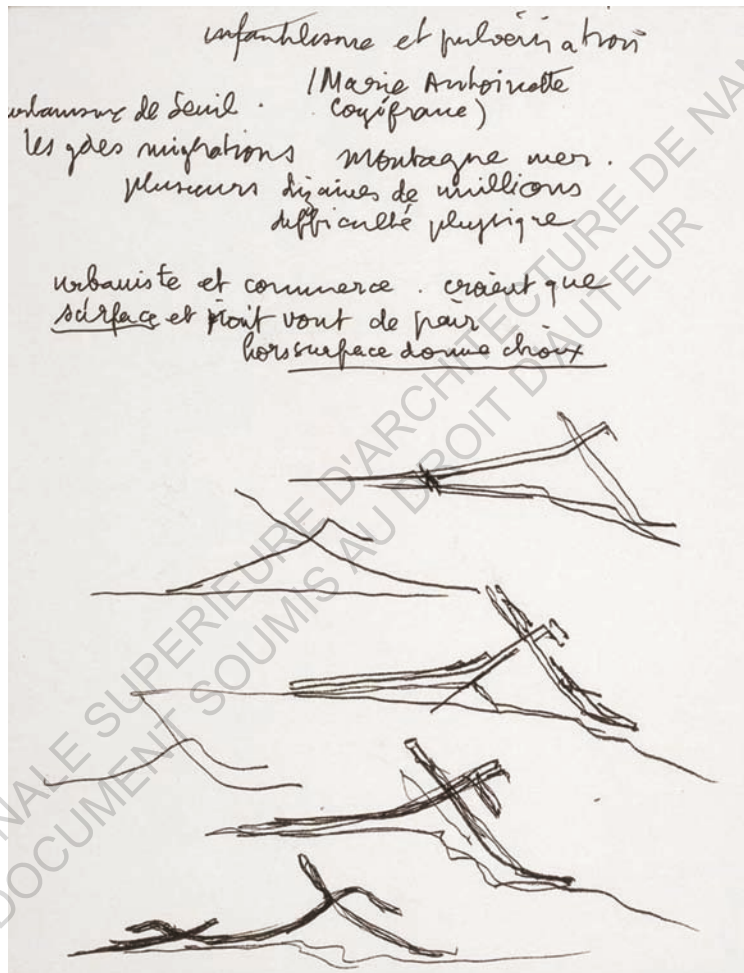 infantilisme et pulvérisation
(Marie Antoinette
urbanisme de seuil. Cogifrance)
les gdes migrations montagne mer.
plusieurs dizaines de millions
difficulté physique
urbaniste et commerce. croient que
surface et vont de pair
hors surface donne choix
NALE SUPERIEURE D'ARCHITECTURE DE NAN
DOCUMENT SOUMIS AU DROIT D'AUTEUR